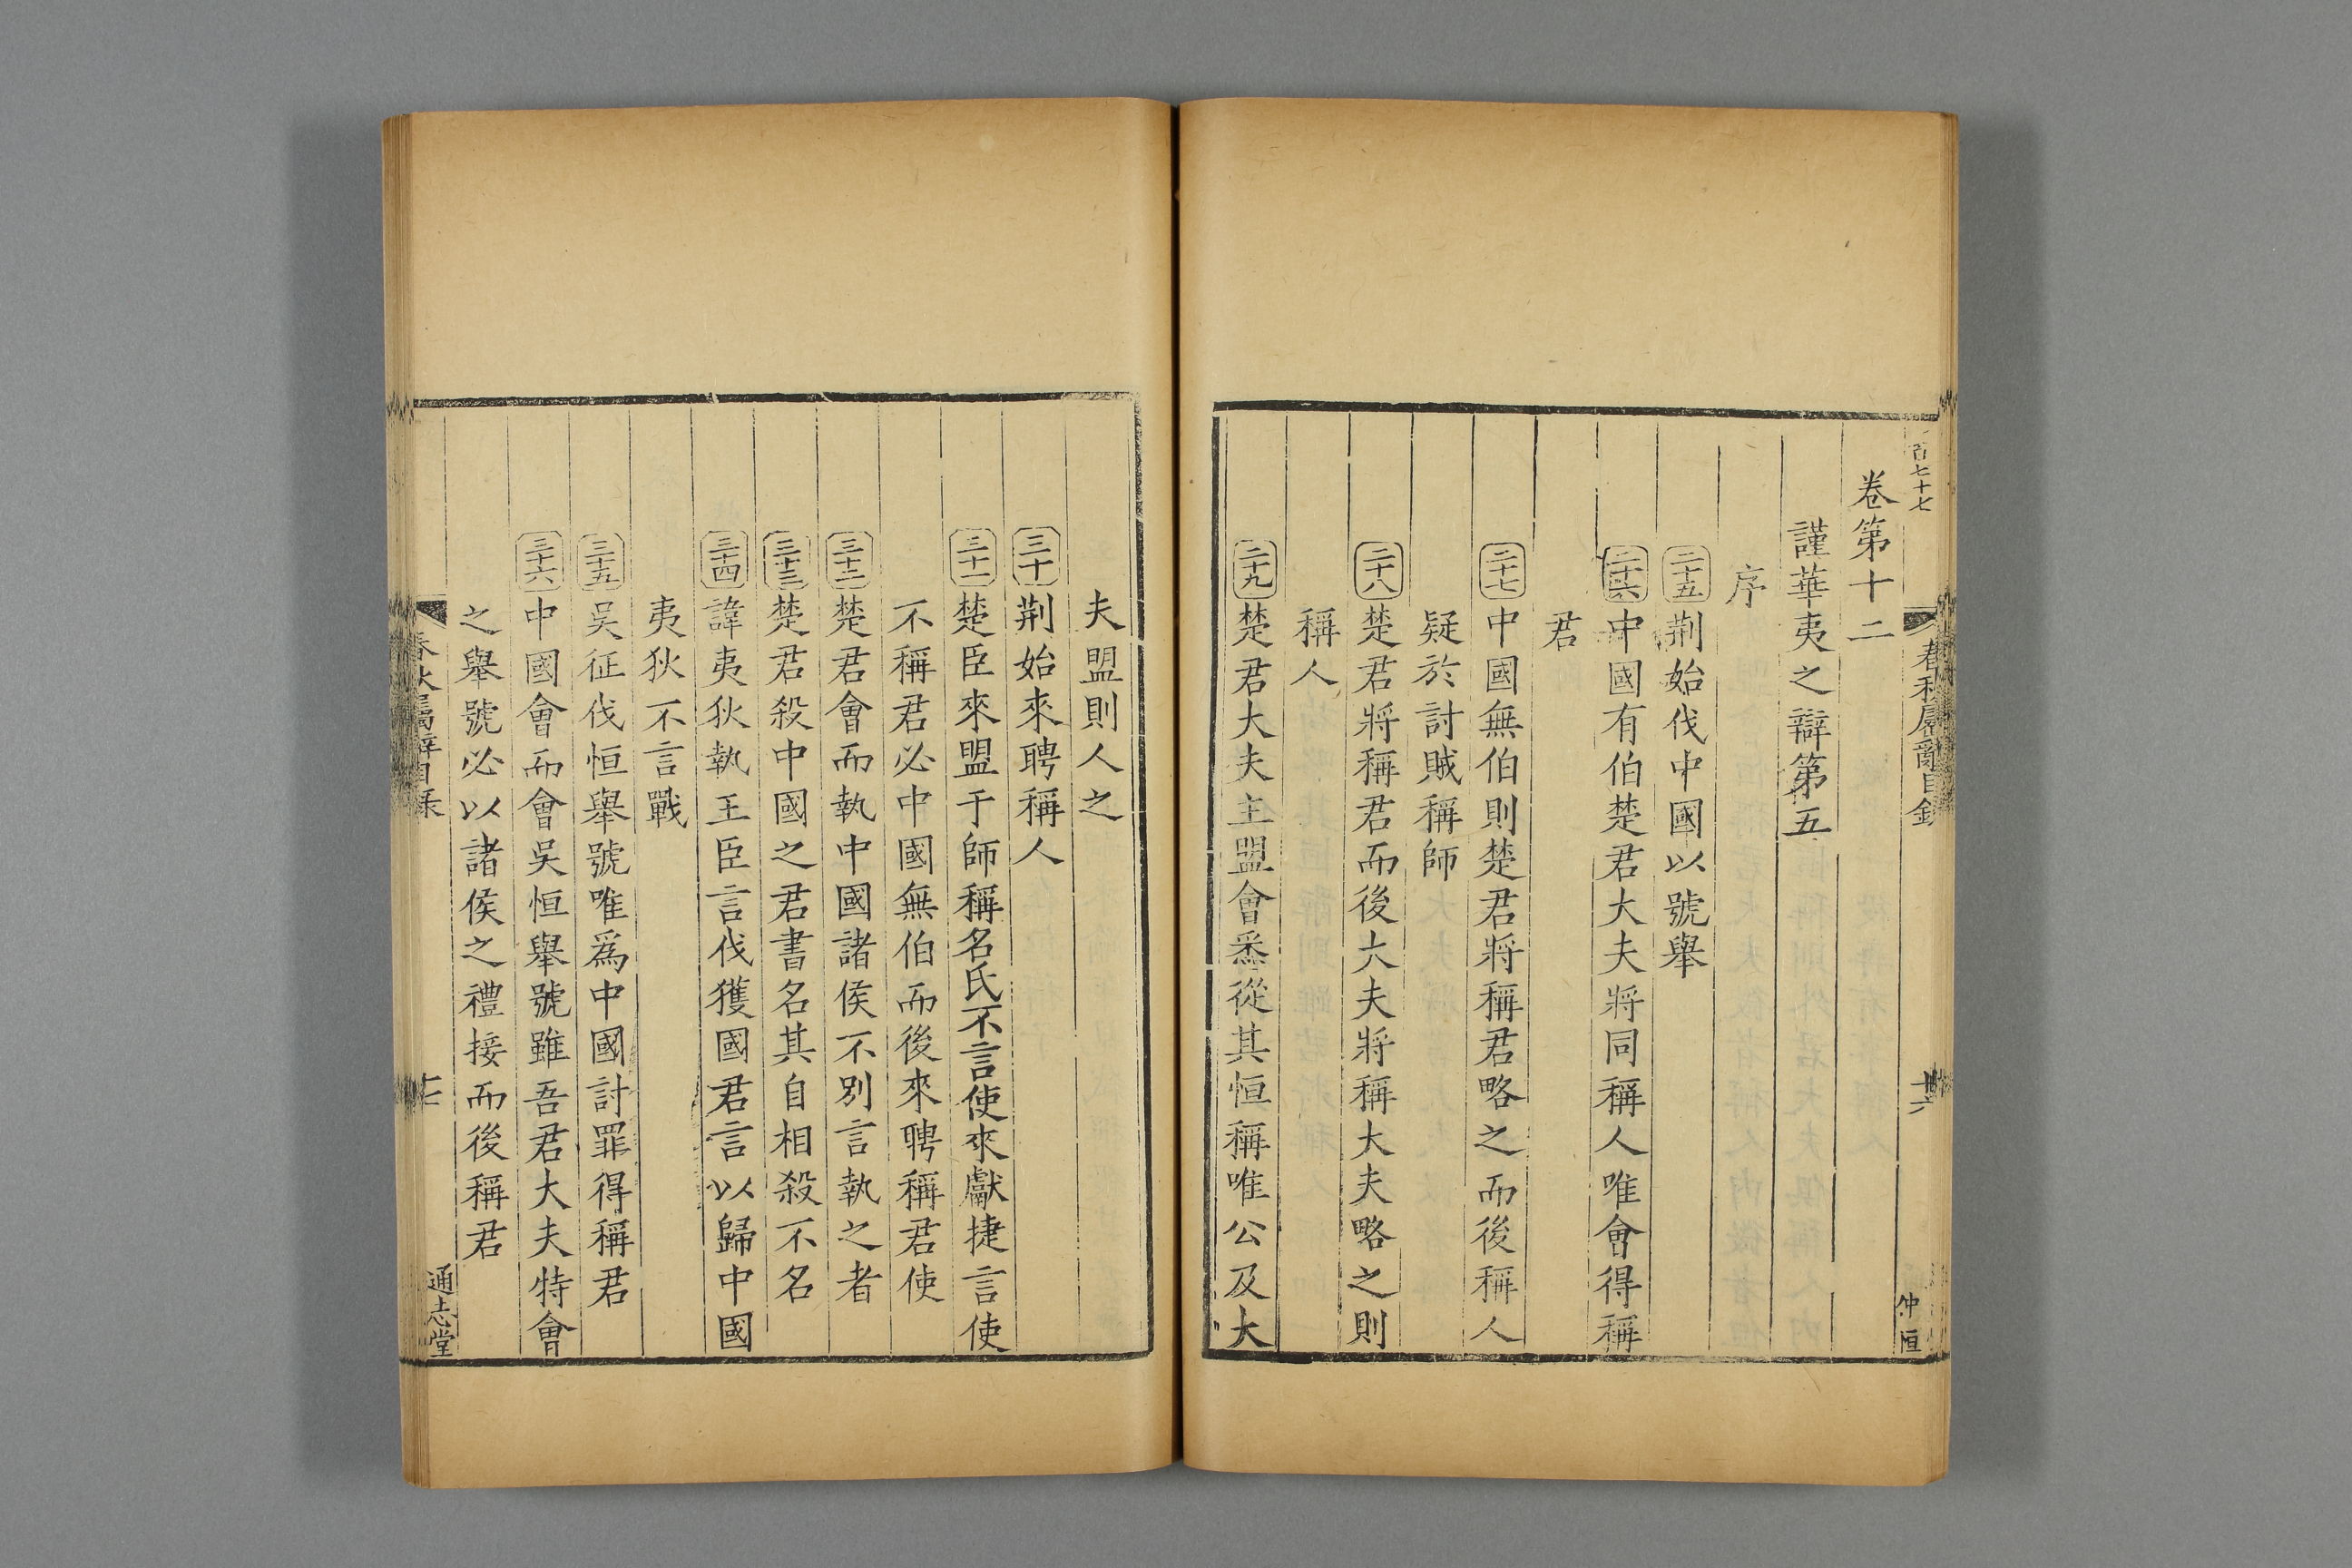 百七十七
春秋屬辭目錄
十六
仲恒
卷第十二
謹華夷之辯第五
序
二十五荆始伐中國以號舉
二十六中國有伯楚君大夫將同稱人唯會得稱
君
二十七中國無伯則楚君將稱君略之而後稱人
疑於討賊稱師
二十八楚君將稱君而後大夫將稱大夫略之則
稱人
二十九楚君大夫主盟會悉從其恒稱唯公及大
夫盟則人之
三十荆始來聘稱人
三十一楚臣來盟于師稱名氏不言使來獻捷言使
不稱君必中國無伯而後來聘稱君使
三十二楚君會而執中國諸侯不別言執之者
三十三楚君殺中國之君書名其自相殺不名
三十四諱夷狄執王臣言伐獲國君言以歸中國
夷狄不言戰
三十五吳征伐恒舉號唯爲中國討罪得稱君
三十六中國會而會吳恒舉號雖吾君大夫特會
之舉號必以諸侯之禮接而後稱君
春秋屬辭目錄
十七
通志堂